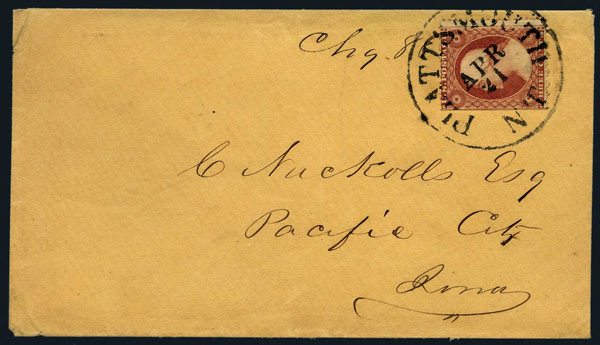 Chg 8
PLATTSMOUTH N.T.
APR
21
C Nuckolls Esq
Pacific City
Iowa